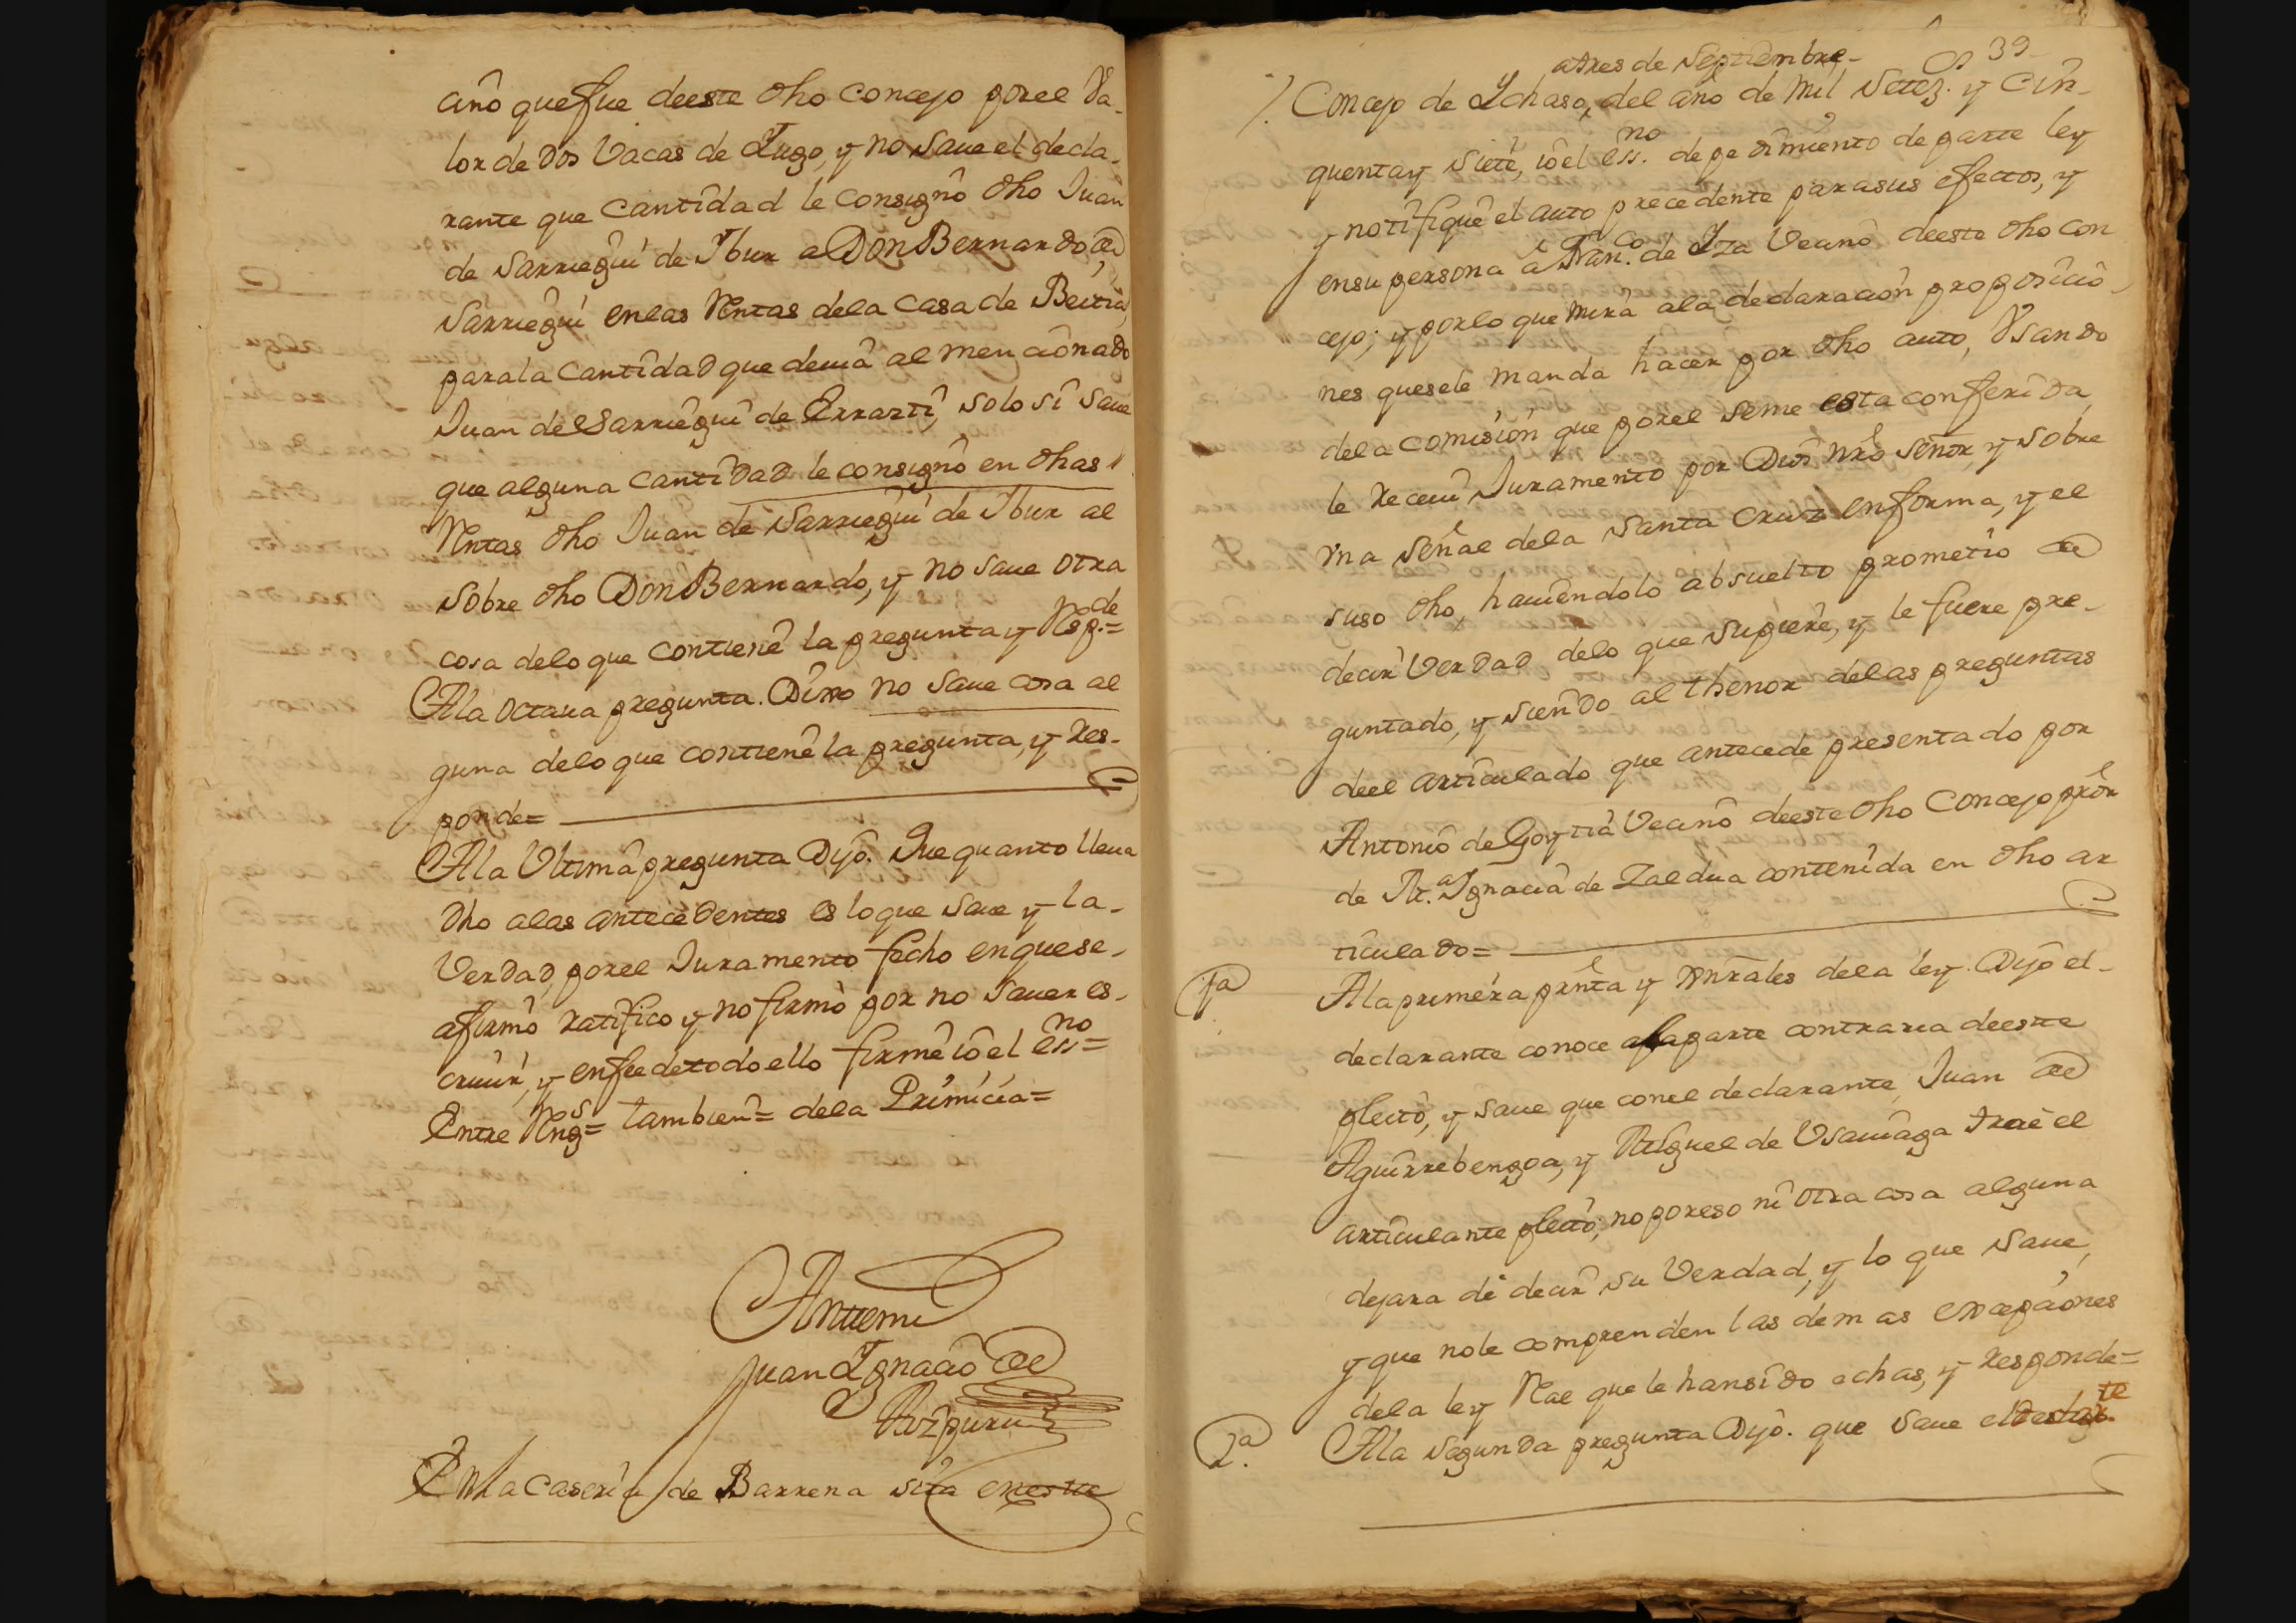 año que fue deeste dho concejo porel Va-
lor de dos Vacas de Iugo, y no saue el decla-
rante que cantidad le consignò dho Juan
de Sarriegui de Ibur a Don Bernardo de
Sarriegui enlas Rentas dela casa de Beitia,
para la cantidad que deuia al mencionado
Juan de Sarriegui de Errazti, solo si saue
que alguna cantidad le consignò en dhas
Rentas dho Juan de Sarriegui de Ibur al
sobre dho Don Bernardo, y no saue otra
cosa delo que contiene la pregunta y Resp.de=
Ala octaua pregunta. Dixo no saue cosa al
guna delo que contiene la pregunta, y res-
ponde=
Ala Ultima pregunta Dijo. Que quanto lleua
dho alas antecedentes es lo que saue y la-
Verdad, porel Juramento fecho enquese-
afirmò ratifico y no firmò por no sauer es-
criuir, y enfee detodoello firmè iò el ess.no=
Entre Reng.s= tambien= dela Primicia=
Antemi
Juan Ignacio de
Aizpuru
En la caseria de Barrena sita eneste
39
atres de Septiembre-
Concejo de Ichaso, del año de Mil Setez. y Cin-
quenta y siete, iò el ess.no de pedimiento de parte ley
y notifiquè el auto precedente parasus efectos, y
ensu persona á Fran.co de Iza Vecino deeste dho con
cejo; y porlo que mira ala declaracion proposicio-
nes quesele manda hacer por dho auto, Vsando
dela comision que porel seme esta conferida,
le receui Juramento por Dios nrô Señor, y sobre
vna señal dela Santa Cruz enforma, y el
suso dho, hauiendolo absuelto prometiò de
decir Verdad delo que supiere, y le fuere pre-
guntado, y siendo al thenor delas preguntas
deel articulado que antecede presentado por
Antonio de Goytia Vecino deeste dho Concejo prôr
de M.a Ignacia de Zaldua contenida en dho ar
ticulado=
1a Ala primera prnta y Gnrales dela ley. Dijo el-
declarante conoce alaparte contraria deeste
pleito, y saue que conel declarante, Juan de
Aguirrebengoa, y Miguel de Vsauiaga trae el
articulante pleito; no poreso ni otra cosa alguna
dejara de decir su Verdad, y lo que saue,
y que nole comprenden las demas excepciones
dela ley Real que le hansido echas, y responde=
2a. Ala segunda pregunta Dijo. que saue el